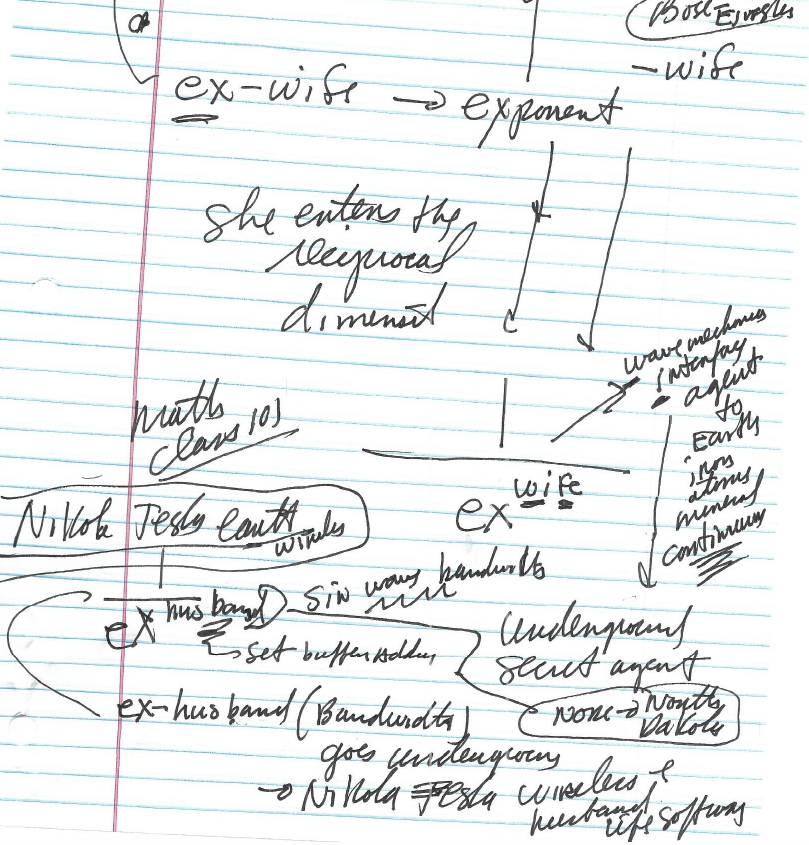 Bose Einstein
-wife
ex-wife → exponent
she enters the
reciprocal
dimension
wave mechanics
interface
agent
to
Earth
iron
atoms
mineral
continuum
Math
Class 101
1
ex wife
Nikola Tesla earth
wireless
1
ex husband
sin wave bandwidth
set buffer address
Underground
secret agent
ex-husband (Bandwidth)
North
Dakota
goes underground
→ Nikola Tesla wireless
husband
life software